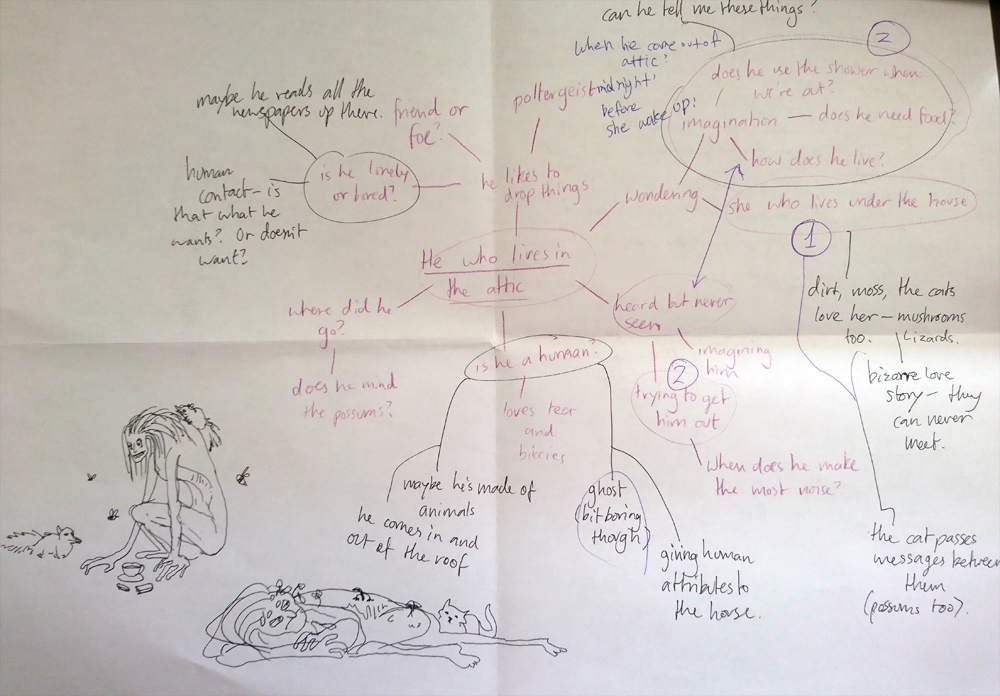 can he tell me these things?
2
when he come out of
attic?
midnight?
before
she wake up?
does he use the shower when
we're out?
imagination — does he need food?
how does he live?
maybe he reads all the
newspapers up there.
friend or
foe?
poltergeist
is he lonely
or bored?
he likes to
drop things
wondering
she who lives under the house
human
contact – is
that what he
wants? Or doesn't
want?
1
He who lives in
the attic
where did he
go?
does he mind
the possums?
heard but never
seen
imagining
him
2
trying to get
him out
when does he make
the most noise?
dirt, moss, the cats
love her – mushrooms
too. lizards.
bizarre love
story – they
can never
meet.
the cat passes
messages between
them
(possums too).
is he a human?
loves tea
and
bikkies
maybe he's made of
animals
he comes in and
out of the roof
ghost
(bit boring
though)
giving human
attributes to
the house.